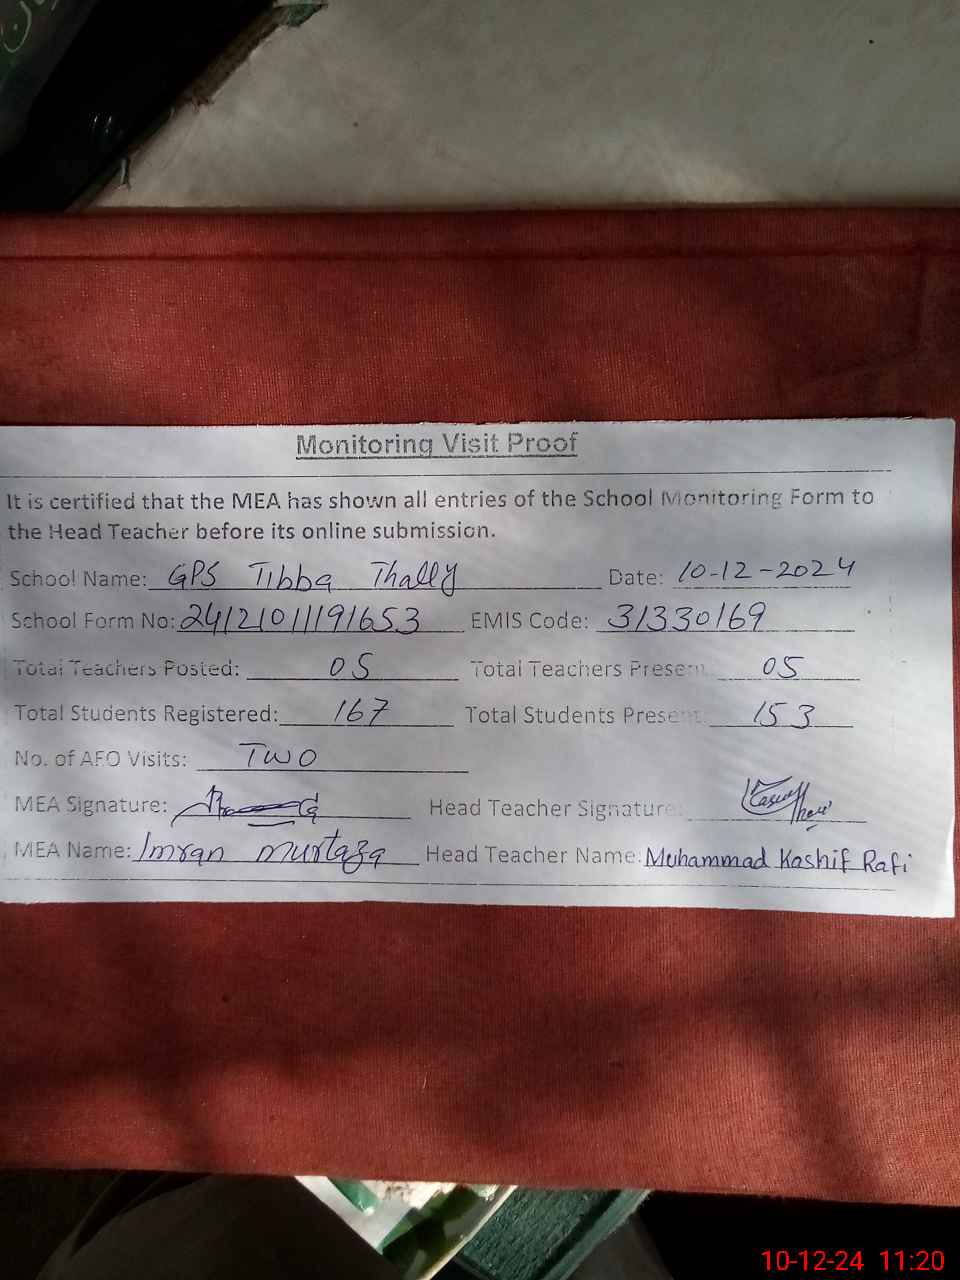 Monitoring Visit Proof
It is certified that the MEA has shown all entries of the School Monitoring Form to
the Head Teacher before its online submission.
School Name: GPS Tibba Thally Date: 10-12-2024
School Form No: 24121011191653 EMIS Code: 31330169
Total Teachers Posted: 05 Total Teachers Present: 05
Total Students Registered: 167 Total Students Present: 153
No. of AEO Visits: Two
MEA Signature: Head Teacher Signature:
MEA Name: Imran Murtaza Head Teacher Name: Muhammad Kashif Rafi
10-12-24 11:20